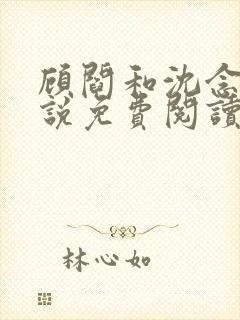 顾閻和沈念
說免費閱讀
林心如